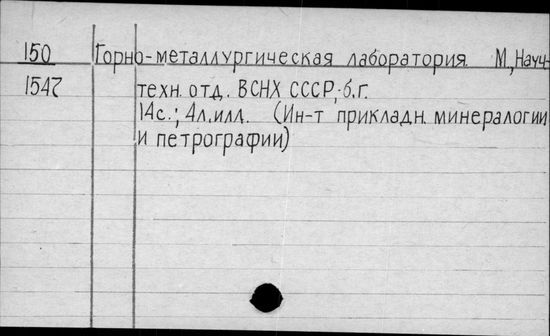 150 Горно-металлургическая лаборатория. М., Науч-
1547 техн. отд. ВСНХ СССР, б.г.
14с.; 4л.илл. (Ин-т прикладн. минералогии
и петрографии)